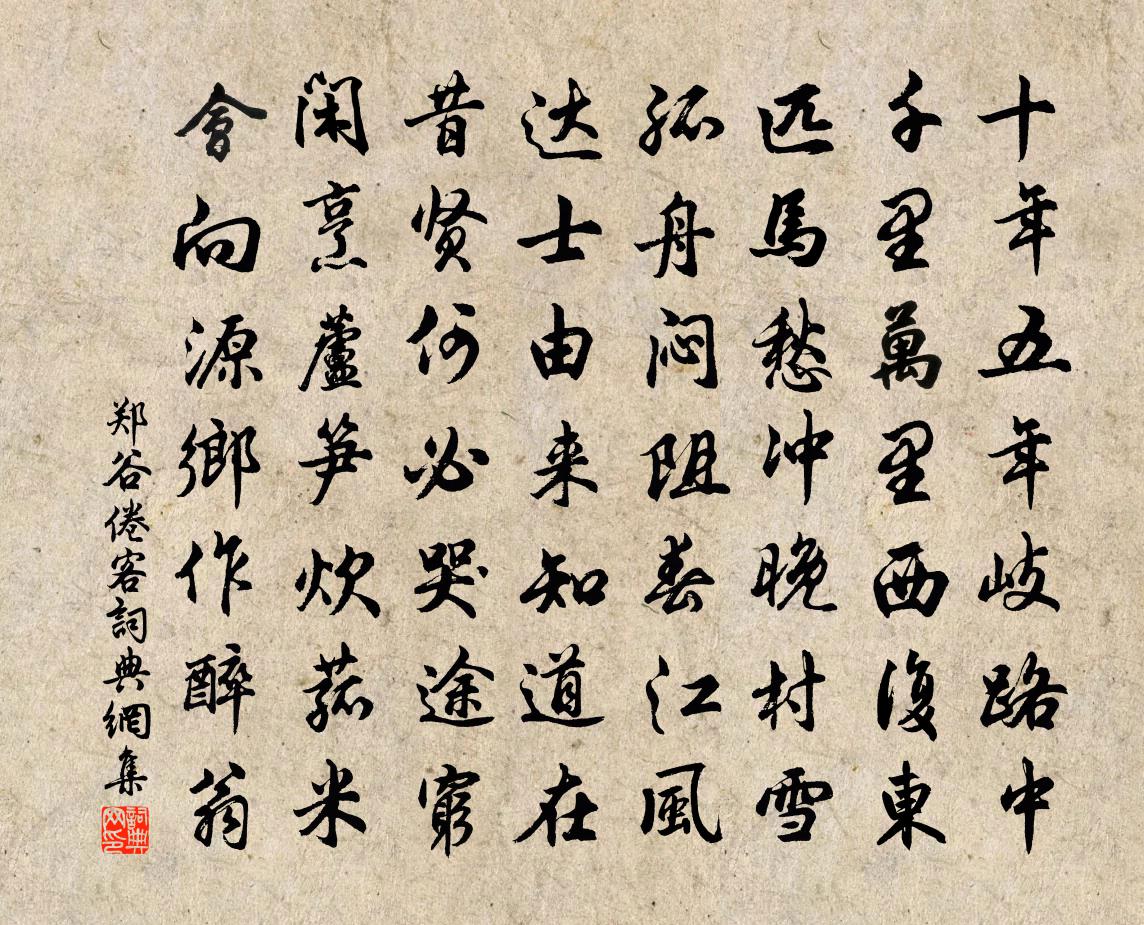 十年五年岐路中
千里萬里西復東
匹馬愁冲晚村雪
孤舟闷阻春江風
达士由来知道在
昔贤何必哭途窮
閑烹蘆笋炊菰米
會向源鄉作醉翁
郑谷倦客詞典網集
詞典网印